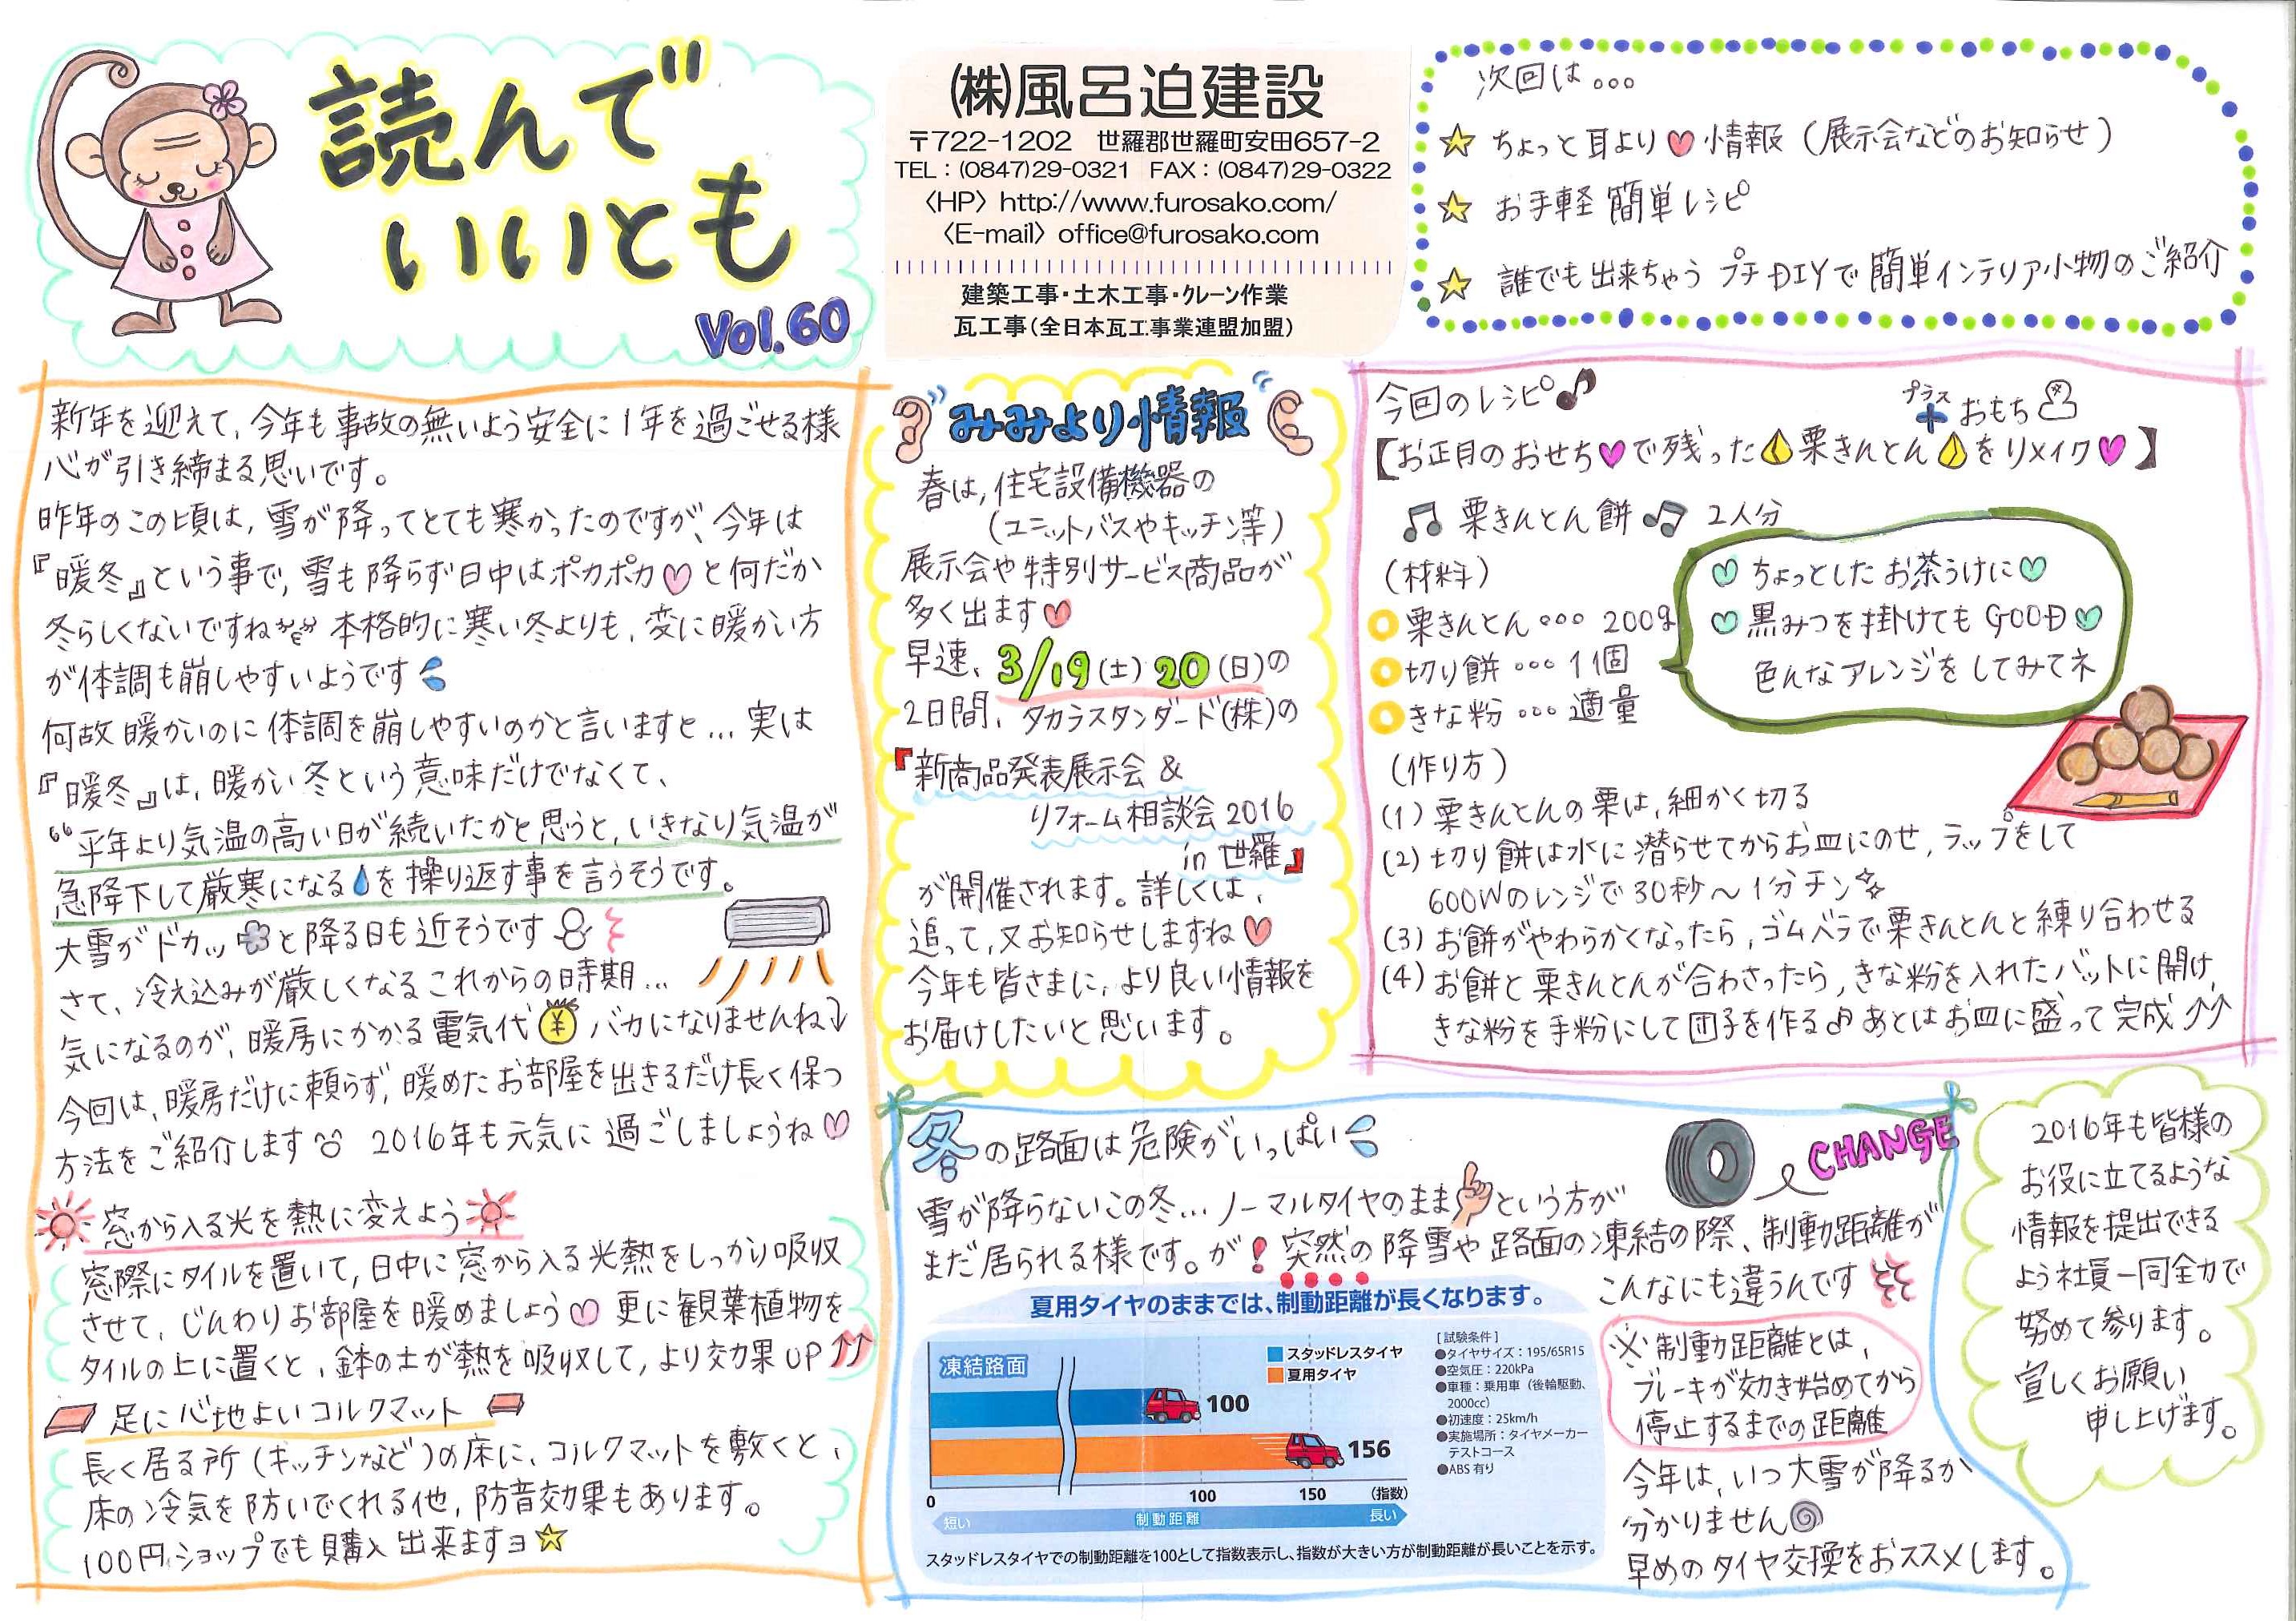 読んで
いいとも
Vol.60
㈱風呂迫建設
〒722-1202 世羅郡世羅町安田657-2
TEL：(0847)29-0321 FAX：(0847)29-0322
〈HP〉http://www.furosako.com/
〈E-mail〉office@furosako.com
建築工事・土木工事・クレーン作業
瓦工事(全日本瓦工事業連盟加盟)
次回は...
☆ ちょっと耳より♡情報（展示会などのお知らせ）
☆ お手軽簡単レシピ
☆ 誰でも出来ちゃう プチDIYで簡単インテリア小物のご紹介
新年を迎えて、今年も事故の無いよう安全に1年を過ごせる様
心が引き締まる思いです。
昨年のこの頃は、雪が降ってとても寒かったのですが、今年は
『暖冬』という事で、雪も降らず日中はポカポカ♡と何だか
冬らしくないですね 本格的に寒い冬よりも、変に暖かい方
が体調も崩しやすいようです
何故暖かいのに体調を崩しやすいのかと言いますと... 実は
『暖冬』は、暖かい冬という意味だけでなくて、
“平年より気温の高い日が続いたかと思うと、いきなり気温が
急降下して厳寒になるを操り返す事を言うそうです。
大雪がドカッと降る日も近そうです
さて、冷え込みが厳しくなるこれからの時期...
気になるのが、暖房にかかる電気代 ¥ バカになりませんね
今回は、暖房だけに頼らず、暖めたお部屋を出きるだけ長く保つ
方法をご紹介します 2016年も元気に過ごしましょうね♡
窓から入る光を熱に変えよう
窓際にタイルを置いて、日中に窓から入る光熱をしっかり吸収
させて、じんわりお部屋を暖めましょう♡ 更に観葉植物を
タイルの上に置くと、鉢の土が熱を吸収して、より効果UP↑↑
足に心地よいコルクマット
長く居る所（キッチンなど）の床に、コルクマットを敷くと、
床の冷気を防いでくれる他、防音効果もあります。
100円ショップでも購入出来ますヨ☆
みみより情報
春は、住宅設備機器の
（ユニットバスやキッチン等）
展示会や特別サービス商品が
多く出ます♡
早速、3/19(土) 20(日)の
2日間、タカラスタンダード(株)の
『新商品発表展示会 &
リフォーム相談会2016
in 世羅』
が開催されます。詳しくは、
追って、又お知らせしますね♡
今年も皆さまに、より良い情報を
お届けしたいと思います。
今回のレシピ♪
プラス
+おもち
【お正月のおせち♥で残った栗きんとんをリメイク♥】
♫ 栗きんとん餅 ♫ 2人分
（材料）
栗きんとん... 200g
切り餅... 1個
きな粉... 適量
♡ ちょっとしたお茶うけに♡
♡ 黒みつを掛けてもGOOD♡
色んなアレンジをしてみてネ
（作り方）
(1) 栗きんとんの栗は、細かく切る
(2) 切り餅は水に潜らせてからお皿にのせ、ラップをして
600Wのレンジで30秒～1分チン
(3) お餅がやわらかくなったら、ゴムベラで栗きんとんと練り合わせる
(4) お餅と栗きんとんが合わさったら、きな粉を入れたバットに開け、
きな粉を手粉にして団子を作る♪ あとはお皿に盛って完成
冬の路面は危険がいっぱい
CHANGE
雪が降らないこの冬... ノーマルタイヤのままという方が
まだ居られる様です。が！突然の降雪や路面の凍結の際、制動距離が
こんなにも違うんです
夏用タイヤのままでは、制動距離が長くなります。
凍結路面
スタッドレスタイヤ
夏用タイヤ
100
156
0 100 150 (指数)
短い 制動距離 長い
[試験条件]
●タイヤサイズ：195/65R15
●空気圧：220kPa
●車種：乗用車（後輪駆動、
2000cc）
●初速度：25km/h
●実施場所：タイヤメーカー
テストコース
●ABS有り
スタッドレスタイヤでの制動距離を100として指数表示し、指数が大きい方が制動距離が長いことを示す。
※制動距離とは、
ブレーキが効き始めてから
停止するまでの距離
今年は、いつ大雪が降るか
分かりません
早めのタイヤ交換をおススメします。
2016年も皆様の
お役に立てるような
情報を提出できる
よう社員一同全力で
努めて参ります。
宜しくお願い
申し上げます。